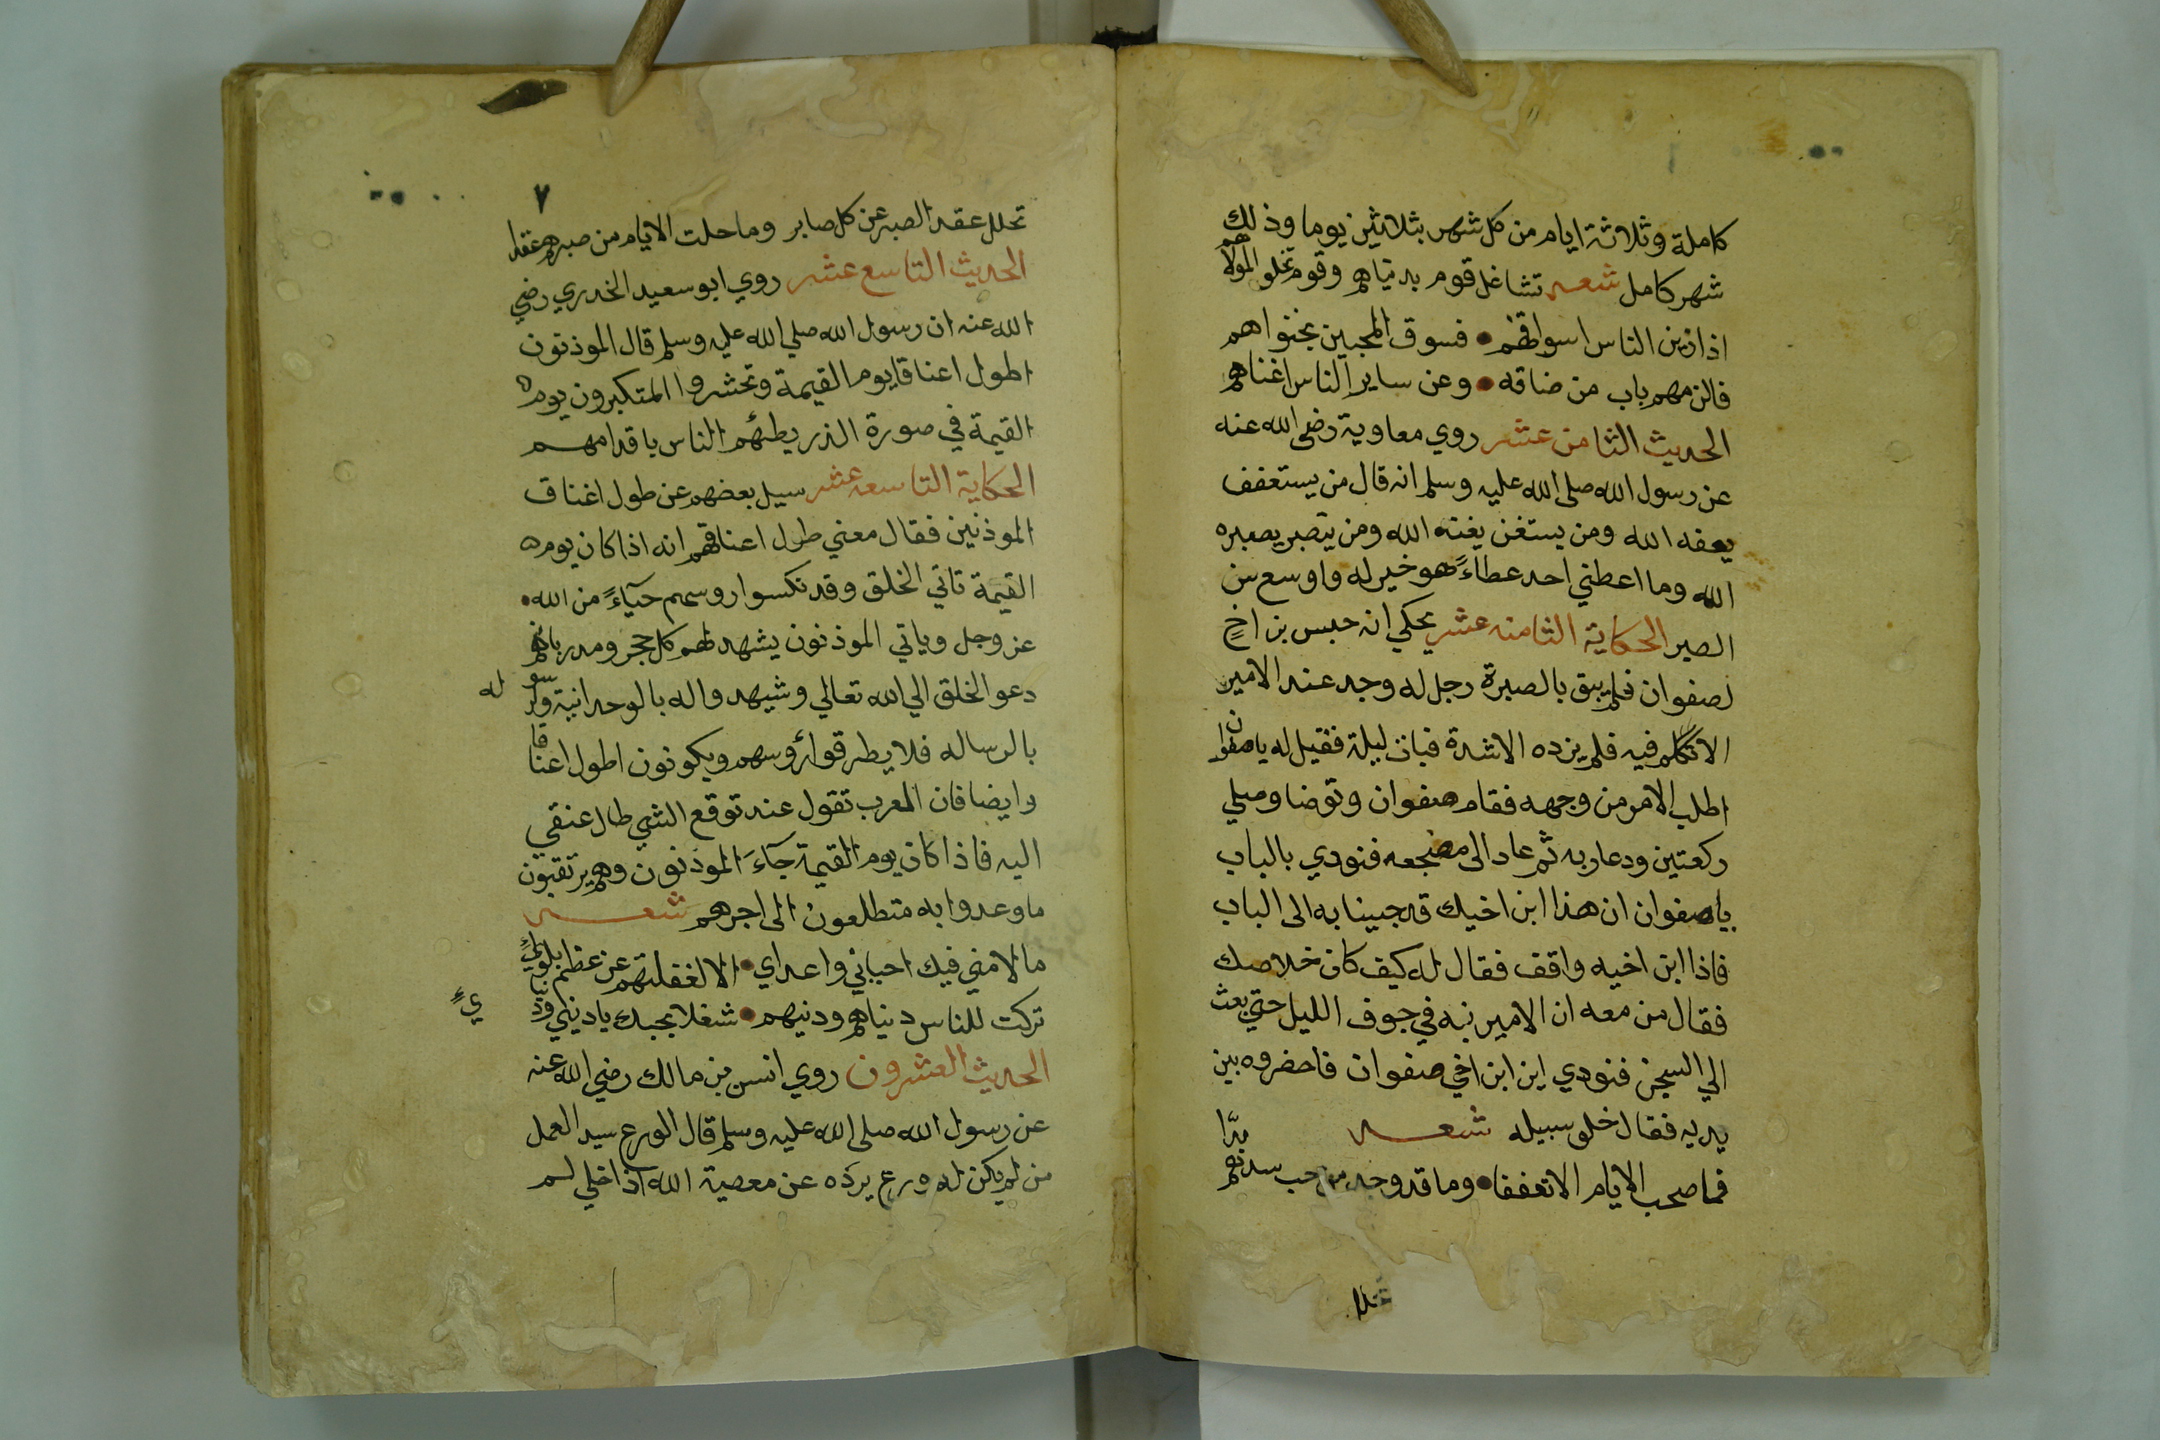 كاملة وثلاثة ايام من كل شهر بثلاثين يوما وذلك
شهر كامل شعر تشاغل قوم بدنياهم وقوم تخلو المولاهم
اذا زين الناس اسواقهم فسوق المحبين نجواهم
فالزمهم باب من ضاقه وعن ساير الناس اغناهم
الحديث الثامن عشر روي معاوية رضي الله عنه
عن رسول الله صلى الله عليه وسلم انه قال من يستعفف
يعفه الله ومن يستغن يغنه الله ومن يتصبر يصبره
الله وما اعطني احد عطاءً هو خير له واوسع من
الصبر الحكاية الثامنه عشر يحكي انه حبس بن اخٍ
لصفوان فلم يبق بالصبرة رجل له وجه عند الامير
الا تكلم فيه فلم يزده الا شدة فبات ليلة فقيل له يا صفوان
اطلب الامر من وجهه فقام صفوان وتوضا وصلي
ركعتين ودعا ربه ثم عاد الى مضجعه فنودي بالباب
يا صفوان ان هذا ابن اخيك قد جينا به الى الباب
فاذا ابن اخيه واقف فقال له كيف كان خلاصك
فقال من معه ان الامير نبه في جوف الليل حتي بعث
الي السجن فنودي اين ابن اخي صفوان فاحضروه بين
يديه فقال خلو سبيله شعر
فما صحب الايام الا تعففا وما قد وجد من حب سيدهم بدّا
تحلل
٧
تحلل عقد الصبر عن كل صابر وما حلت الايام من صبرهم عقدا
الحديث التاسع عشر روي ابو سعيد الخدري رضي
الله عنه ان رسول الله صلي الله عليه وسلم قال الموذنون
اطول اعناقا يوم القيمة وتحشروا المتكبرون يوم
القيمة في صورة الذر يطئهم الناس باقدامهم
الحكاية التاسعه عشر سيل بعضهم عن طول اغناق
الموذنين فقال معني طول اعناقهم انه اذا كان يوم
القيمة تاتي الخلق وقد نكسوا روسهم حيآءً من الله
عز وجل وياتي الموذنون يشهد لهم كل حجر ومدر بانهم
دعو الخلق الي الله تعالي وشيهدوا له بالوحدانية ولرسوله
بالرساله فلا يطرقوا رؤسهم ويكونون اطول اعناقا
وايضا فان العرب تقول عند توقع الشي طال عنقي
اليه فاذا كان يوم القيمة جآءَ الموذنون وهم يرتقبون
ما وعدوا به متطلعون الى اجرهم شعر
ما لامني فيك احبابي واعداي الا لغفلتهم عن عظم بلوائي
تركت للناس دنياهم ودنيهم شغلا بحبك يا ديني ودنيايءٍ
الحديث العشرون روي انس بن مالك رضي الله عنه
عن رسول الله صلى الله عليه وسلم قال الورع سيد العمل
من لم يكن له ورع يرده عن معصية الله اذا خلي لم